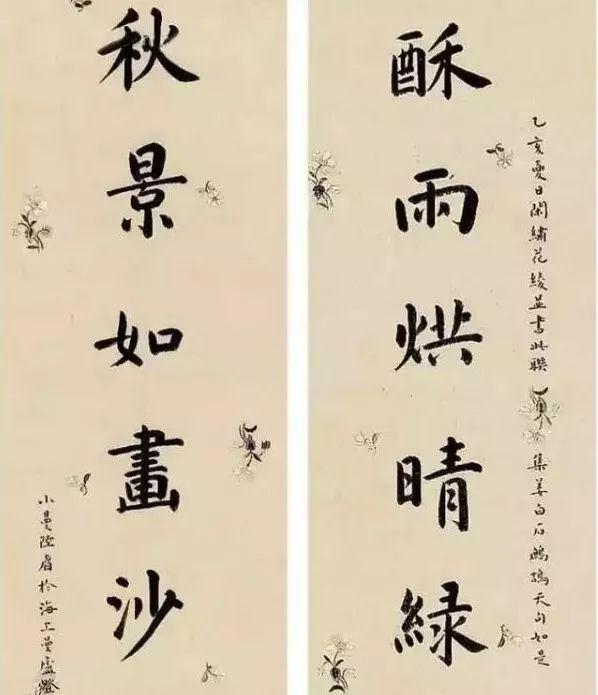 乙亥夏日閑繡花綾並書此聯 集姜白石鷓鴣天句如是
酥雨烘晴緑
秋景如畫沙
小曼陸眉於海上曼盧燈